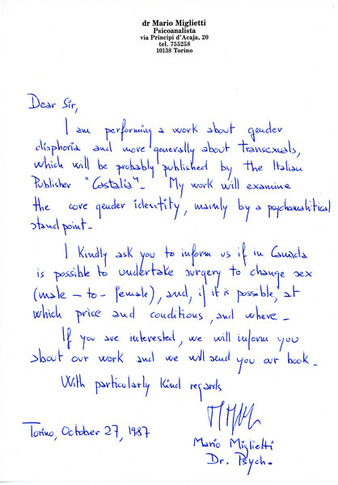 dr Mario Miglietti
Psicoanalista
via Principi d'Acaja, 20
tel. 755258
10138 Torino
Dear Sir,
I am performing a work about gender
disphoria and more generally about transexuals,
which will be probably published by the Italian
Publisher "Castalia". My work will examine
the core gender identity, mainly by a psychoanalitical
stand point.
I Kindly ask you to inform us if in Canada
is possible to undertake surgery to change sex
(male - to - female), and, if it is possible, at
which price and conditions, and where -
If you are interested, we will inform you
about our work and we will send you our book.
With particularly Kind regards
Torino, October 27, 1987
Mario Miglietti
Dr. Psych.